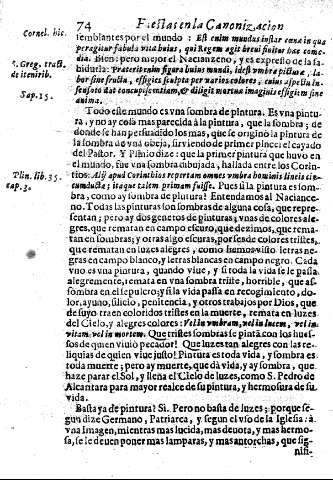 74 Fiestas en la Canonizacion
Cornel. hic.
semblantes por el mundo: Est enim mundus instar cœna in qua
peragitur fabula vitæ huius, qui Regem agit brevi finitur hæc comœ-
S. Greg. tract.
de itinerib.
dia. Bien: pero mejor el Nacianzeno, y es expresso de la sa-
biduria: Præterit enim figura huius mundi, idest vmbra picturæ, la-
Sap. 15.
bor sine fructu, effigies sculpta per varios colores, cuius aspectu in-
sensato dat concupiscentiam, & diligit mortuæ imaginis effigiem sine
anima.
Todo este mundo es vna sombra de pintura. Es vna pintu-
ra, y no ay cosa mas parecida à la pintura, que la sombra; de
donde se han persuadido los mas, que se origino la pintura de
la sombra de vna obeja, sirviendo de primer pincel el cayado
del Pastor. Y Plinio dize: que la primer pintura que huvo en
el mundo, fue vna sombra dibujada, hallada entre los Corin-
Plin. lib. 35.
cap. 3.
tios: Alij apud Corinthios repertam omnes vmbra hominis lineis cir-
cumducta; itaque talem primam fuisse. Pues si la pintura es som-
bra, como ay sombra de pintura? Entendamos al Nacience-
no. Todas las pinturas son sombras de alguna cosa, que repre-
sentan; pero ay dos generos de pinturas; vnas de colores ale-
gres, que rematan en campo escuro, que dezimos, que rema-
tan en sombras; y otras algo escuras, por ser de colores tristes,
que rematan en luzes alegres, como letras ne-
gras en campo blanco, y letras blancas en campo negro. Cada
vno es vna pintura, quando viue, y si toda la vida se le passa
alegremente, remata en vna sombra triste, horrible, que as-
sombra en el sepulcro; y si la vida passa en recogimiento, do-
lor, ayuno, silicio, penitencia, y otros trabajos por Dios, que
de suyo traen coloridos tristes en la muerte, rematan en luzes
del Cielo, y alegres colores: Vel in vmbram, vel in lucem, vel in
vitam, vel in mortem. Que tristes sombras se pintã con los hues-
sos de quien viuiò pecador! Que luzes tan alegres con las re-
liquias de quien viue justo! Pintura es toda vida, y sombra es
toda muerte; pero ay muerte, que dà vida, y ay sombra, que
haze parar el Sol, y llena el Cielo de luzes, como S. Pedro de
Alcantara para mayor realce de su pintura, y hermosura de su
vida.
Basta ya de pintura? Si. Pero no basta de luzes; porque se-
gun dize Germano, Patriarca, y segun el vso de la Iglesia: à
vna Imagen, mientras mas lucida, mas deuota, y mas hermo-
sa, se le deuen poner mas lamparas, y mas antorchas, que sig-
nifi-